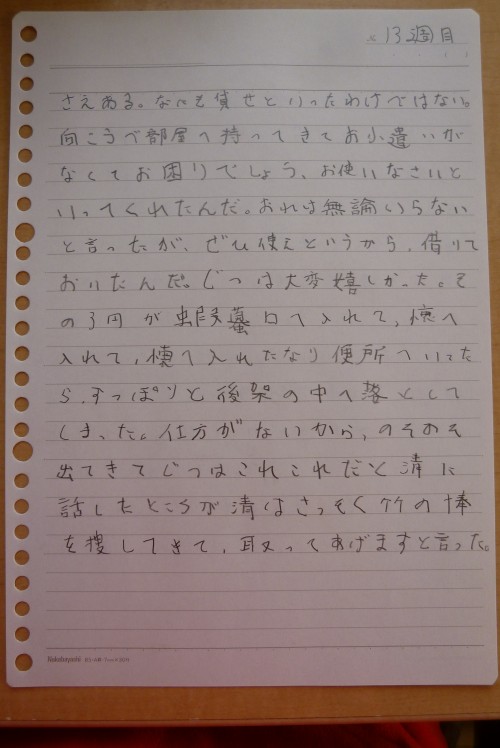 13週目
さえある。なにも貸せといったわけではない。
向こうで部屋へ持ってきてお小遣いが
なくてお困りでしょう、お使いなさいと
いってくれたんだ。おれは無論いらない
と言ったが、ぜひ使えというから、借りて
おいたんだ。じつは大変嬉しかった。そ
の3円が蝦蟇口へ入れて、懐へ
入れて、懐へ入れたなり便所へいった
ら、すっぽりと後架の中へ落として
しまった。仕方がないから、のそのそ
出てきてじつはこれこれだと清に
話したところが清はさっそく竹の棒
を捜してきて、取ってあげますと言った。
Nakabayashi